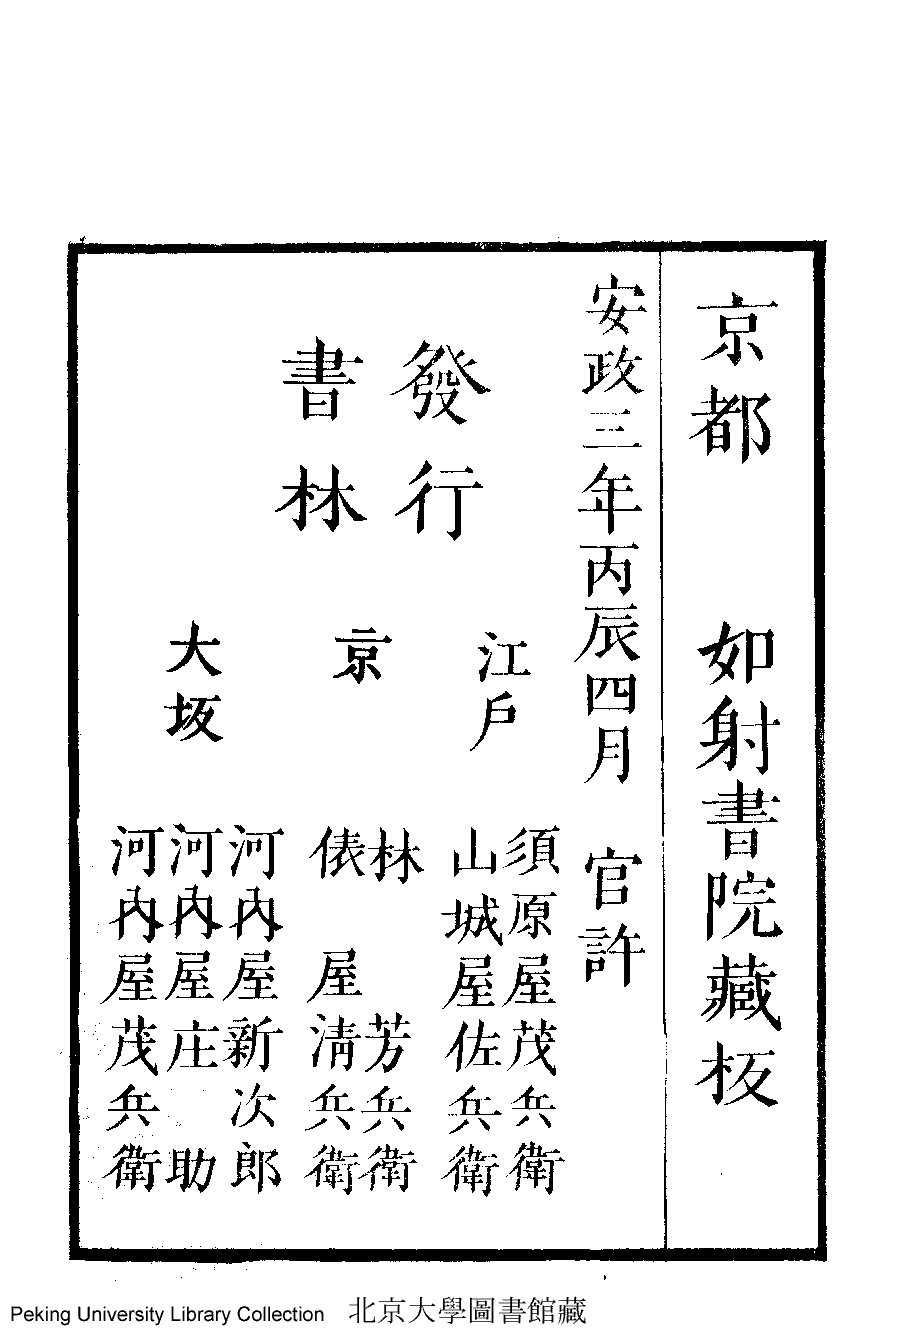 京都　如射書院藏板
安政三年丙辰四月　官許
發行
書林
江戶
須原屋茂兵衛
山城屋佐兵衛
京
林　芳兵衛
俵屋清兵衛
大坂
河內屋新次郎
河內屋庄助
河內屋茂兵衛
Peking University Library Collection　北京大學圖書館藏